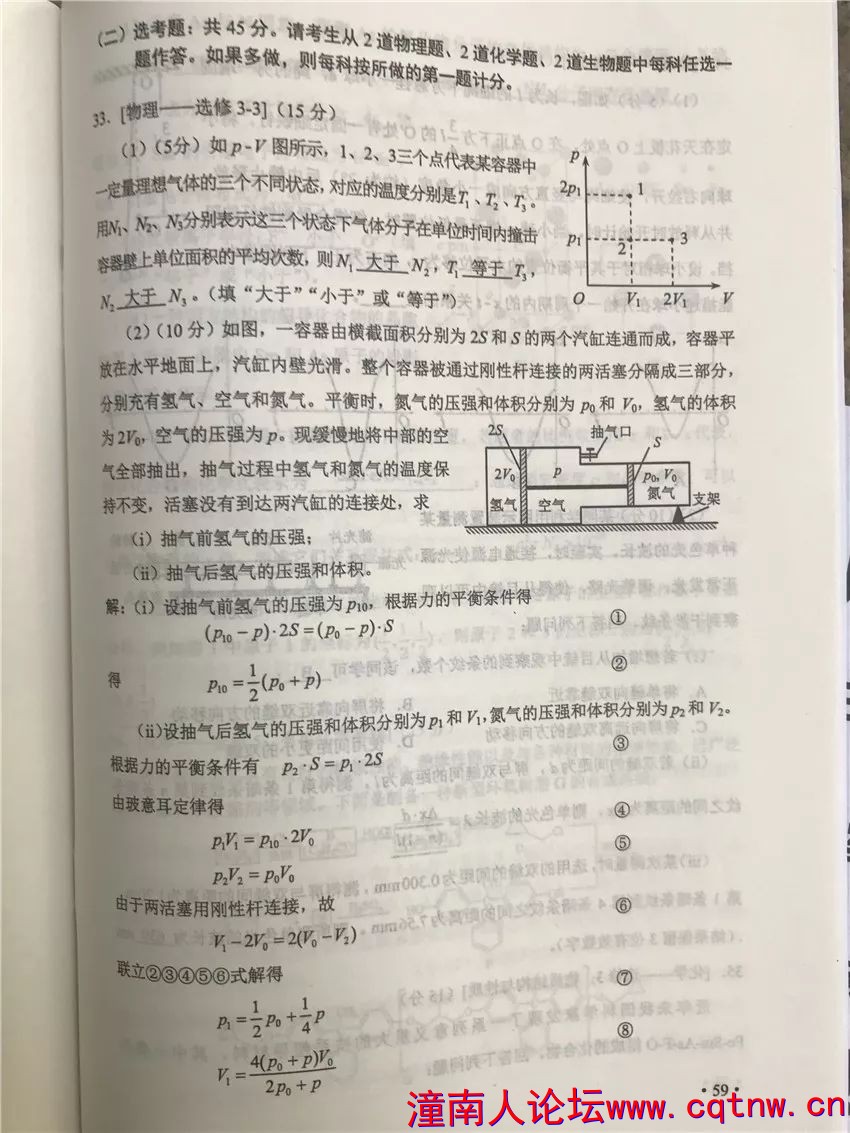 (二) 选考题：共 45 分。请考生从 2 道物理题、2 道化学题、2 道生物题中每科任选一
题作答。如果多做，则每科按所做的第一题计分。
33. [物理——选修 3-3]（15 分）
(1)（5分）如 p-V 图所示，1、2、3三个点代表某容器中
一定量理想气体的三个不同状态，对应的温度分别是T₁、T₂、T₃。
用N₁、N₂、N₃分别表示这三个状态下气体分子在单位时间内撞击
容器壁上单位面积的平均次数，则 N₁ 大于 N₂，T₁ 等于 T₃，
N₂ 大于 N₃。（填“大于”“小于”或“等于”）
p
2p₁
1
p₁
2
3
O V₁ 2V₁ V
(2)（10 分）如图，一容器由横截面积分别为 2S 和 S 的两个汽缸连通而成，容器平
放在水平地面上，汽缸内壁光滑。整个容器被通过刚性杆连接的两活塞分隔成三部分，
分别充有氢气、空气和氮气。平衡时，氮气的压强和体积分别为 p₀ 和 V₀，氢气的体积
为 2V₀，空气的压强为 p。现缓慢地将中部的空
气全部抽出，抽气过程中氢气和氮气的温度保
持不变，活塞没有到达两汽缸的连接处，求
(i) 抽气前氢气的压强；
(ii) 抽气后氢气的压强和体积。
2S 抽气口 S
2V₀ p p₀, V₀
氢气 空气 氮气 支架
解：(i) 设抽气前氢气的压强为 p₁₀，根据力的平衡条件得
(p₁₀ − p)·2S = (p₀ − p)·S ①
得 p₁₀ = 1/2(p₀ + p) ②
(ii)设抽气后氢气的压强和体积分别为 p₁ 和 V₁，氮气的压强和体积分别为 p₂ 和 V₂。
根据力的平衡条件有 p₂·S = p₁·2S ③
由玻意耳定律得
p₁V₁ = p₁₀·2V₀ ④
p₂V₂ = p₀V₀ ⑤
由于两活塞用刚性杆连接，故
V₁ − 2V₀ = 2(V₀ − V₂) ⑥
联立②③④⑤⑥式解得
p₁ = 1/2 p₀ + 1/4 p ⑦
V₁ = 4(p₀ + p)V₀ / 2p₀ + p ⑧
·59·
潼南人论坛www.cqtnw.cn